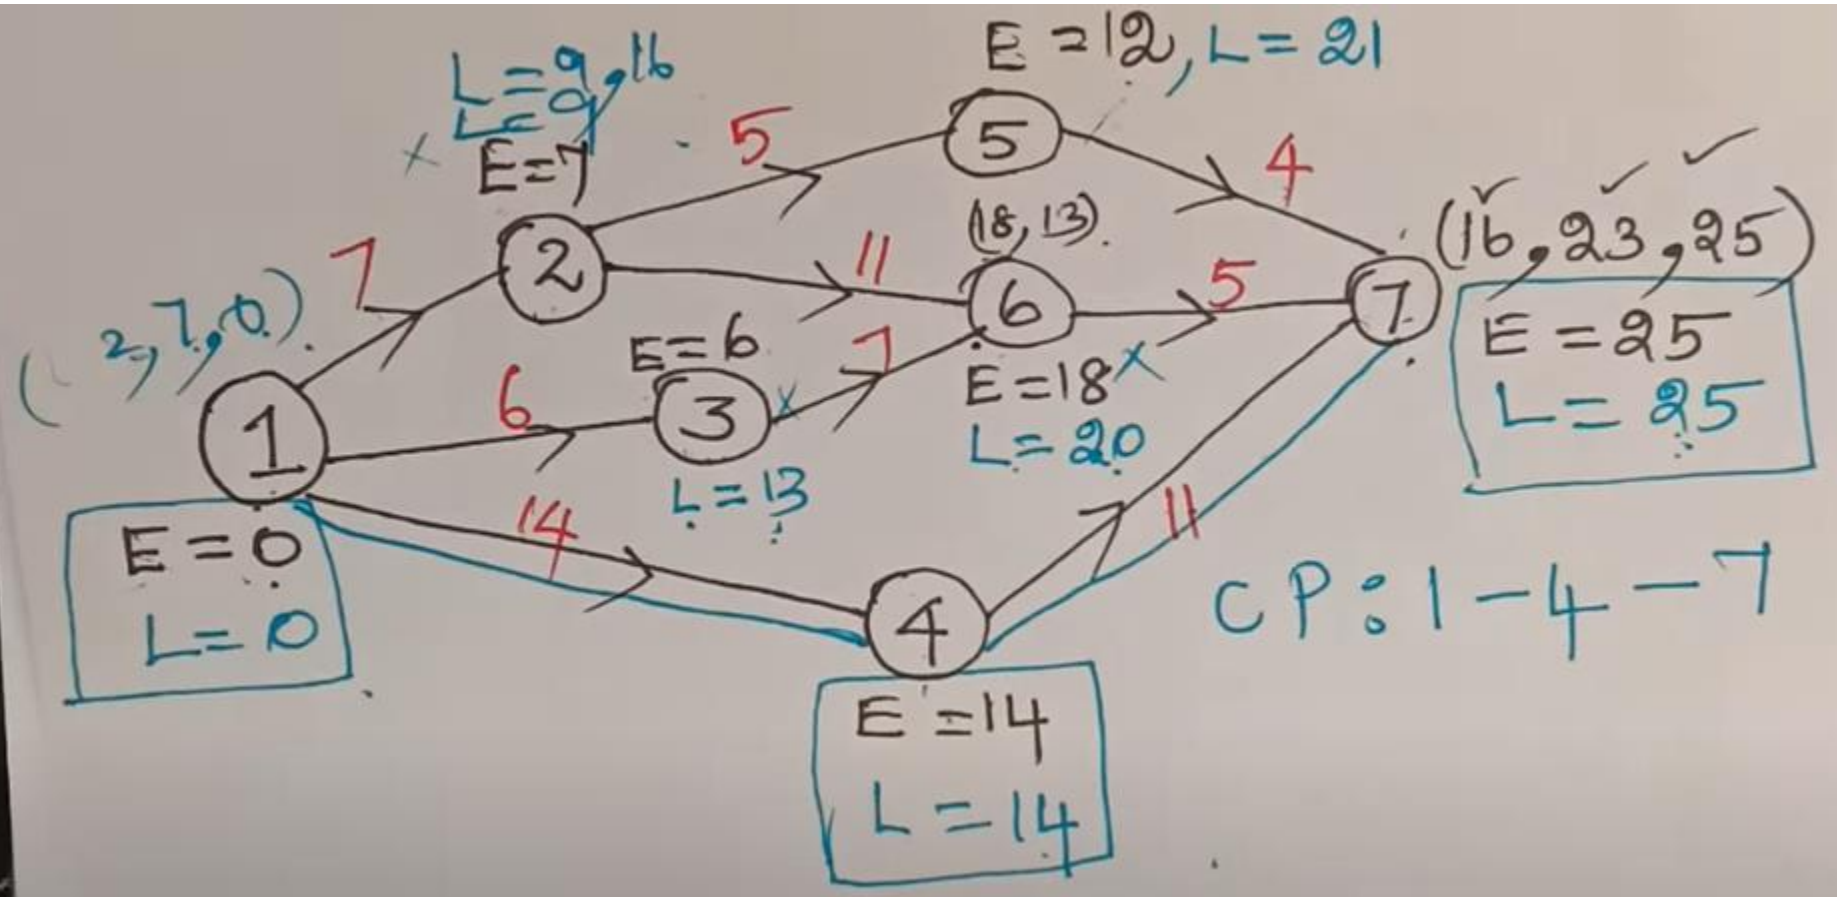 E = 12, L = 21
L = 9, 16
L = 9
E = 7
5
4
5
2
(18, 13).
(16, 23, 25)
7
11
6
5
7
E = 25
L = 25
(2, 7, 0).
E = 6
7
E = 18
L = 20
1
6
3
L = 13
E = 0
L = 0
14
11
4
CP: 1 - 4 - 7
E = 14
L = 14